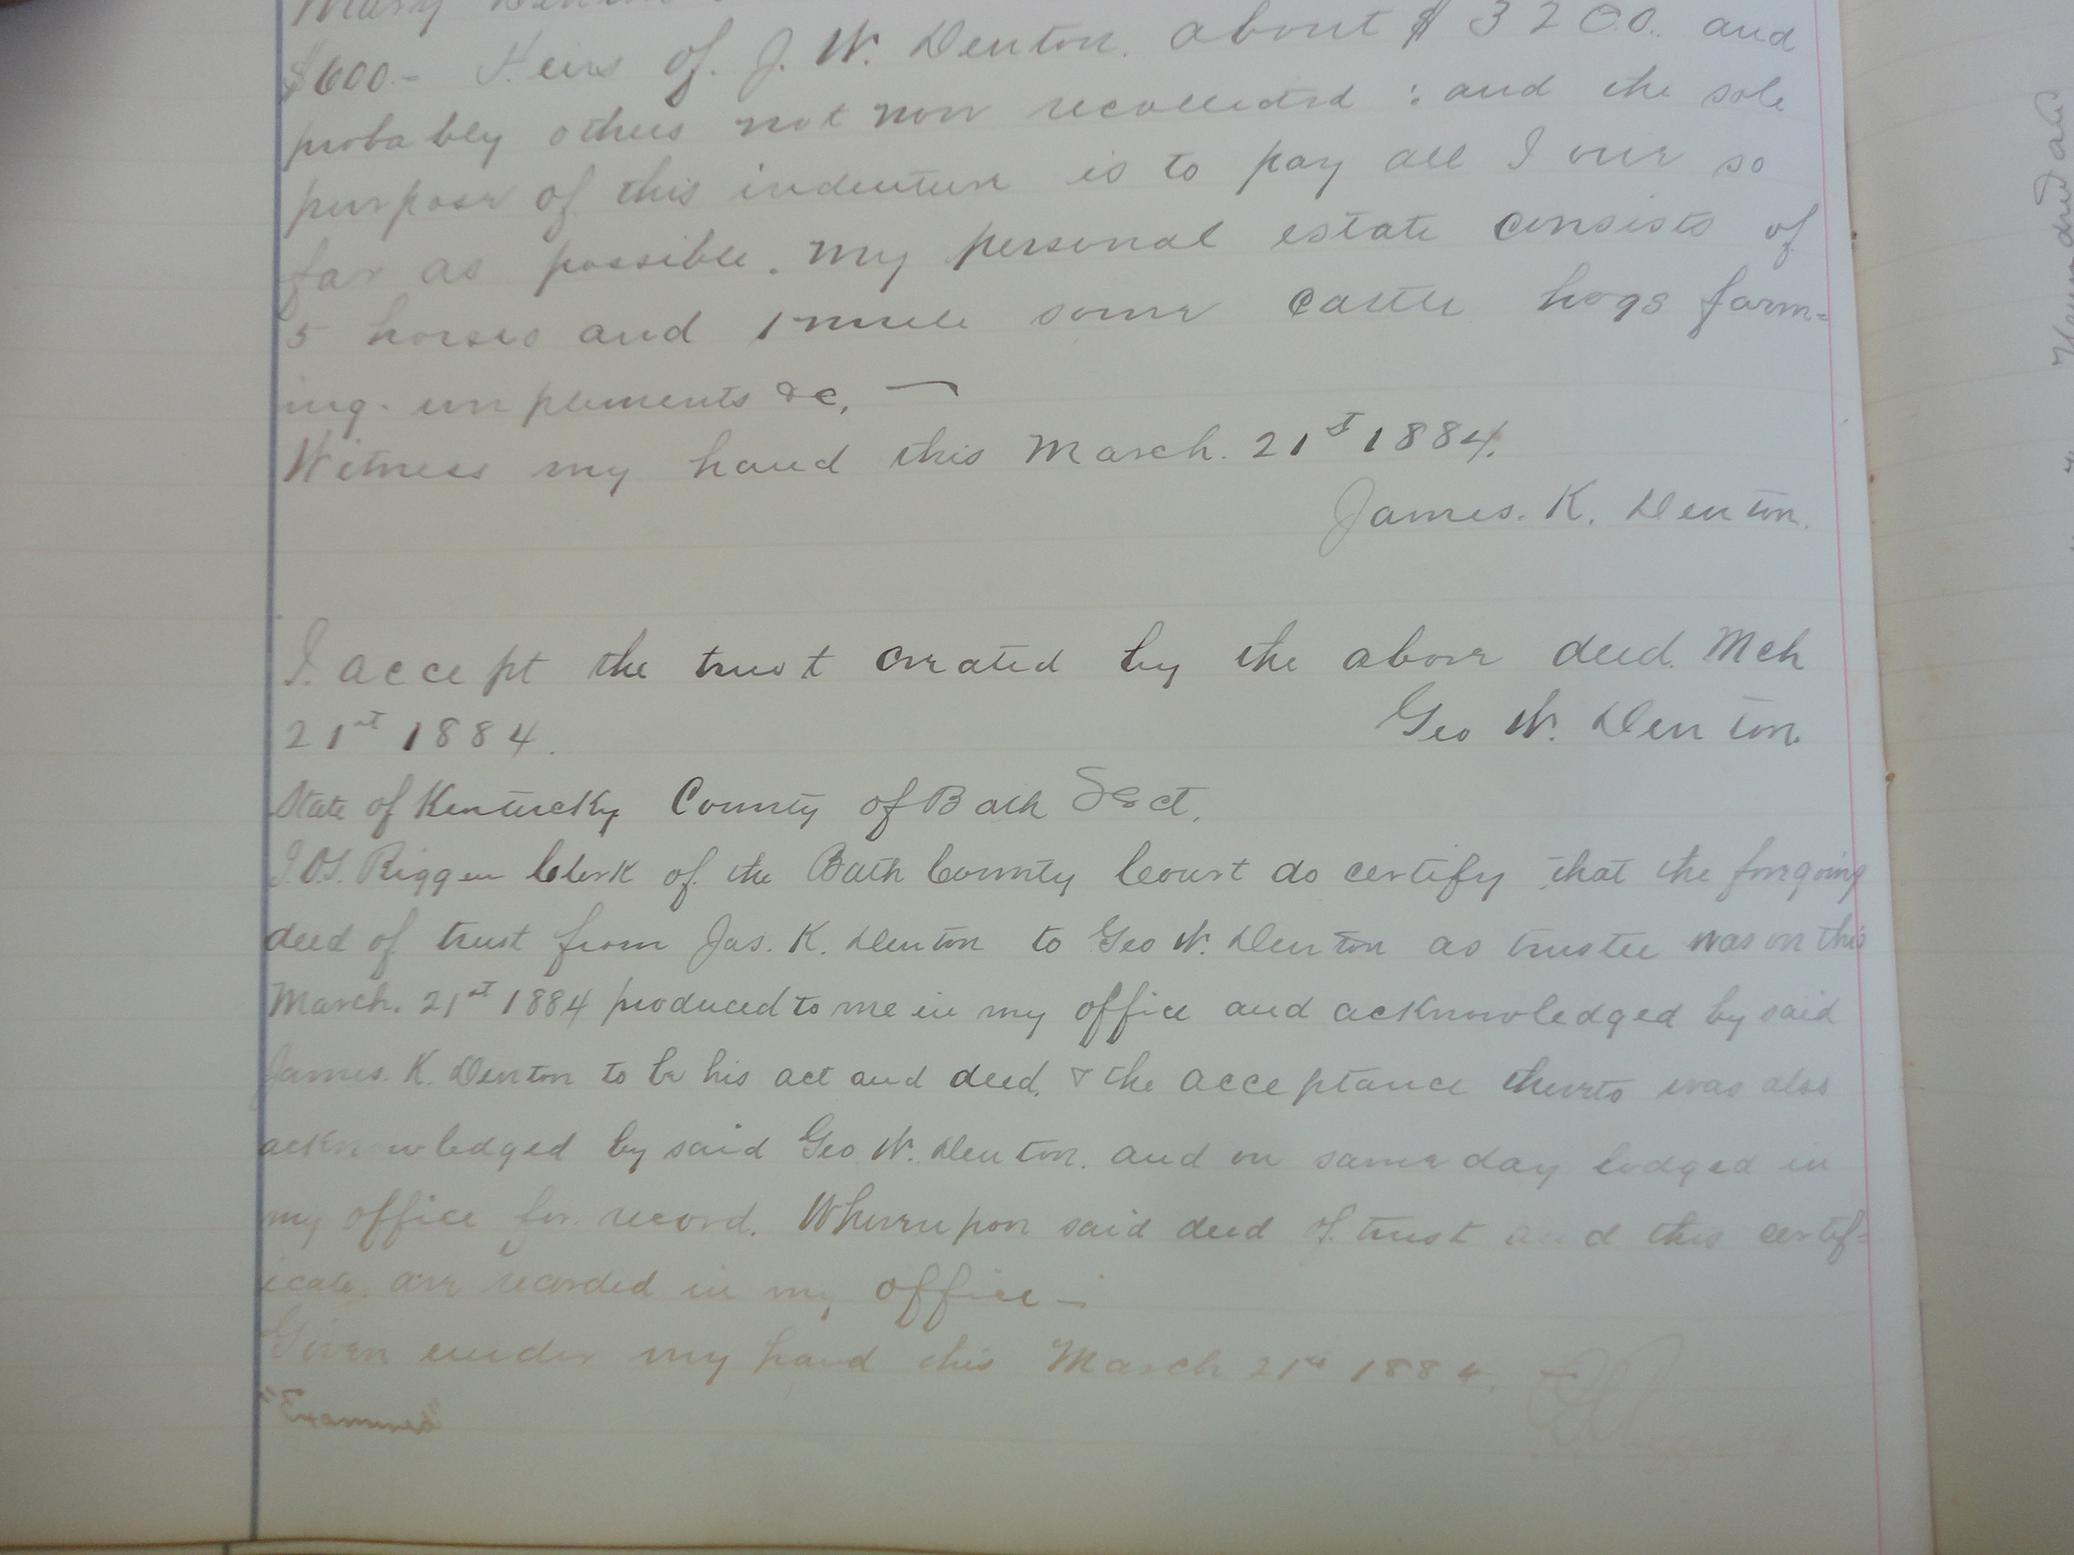 Mary Denton
$600.- Heirs of. J. W. Denton. about $3200. and
probably others not now recollected : and the sole
purpose of this indenture is to pay all I owe so
far as possible. My personal estate consists of
5 horses and 1 mule some cattle hogs farm=
ing. implements &c,
Witness my hand this March. 21st 1884.
James. K. Denton.
I. accept the trust created by the above deed. Mch
21st 1884.
Geo W. Denton.
State of Kentucky County of Bath Sct.
I. Riggen Clerk of. the Bath County Court do certify that the foregoing
deed of trust from Jas. K. Denton to Geo W. Denton as trustee was on this
March. 21st 1884 produced to me in my office and acknowledged by said
James. K. Denton to be his act and deed. & the acceptance thereto was also
acknowledged by said Geo W. Denton. and on same day lodged in
my office for record. Whereupon said deed of. trust and this certif=
icate are recorded in my office -
Given under my hand this March 21st 1884.
"Examined"